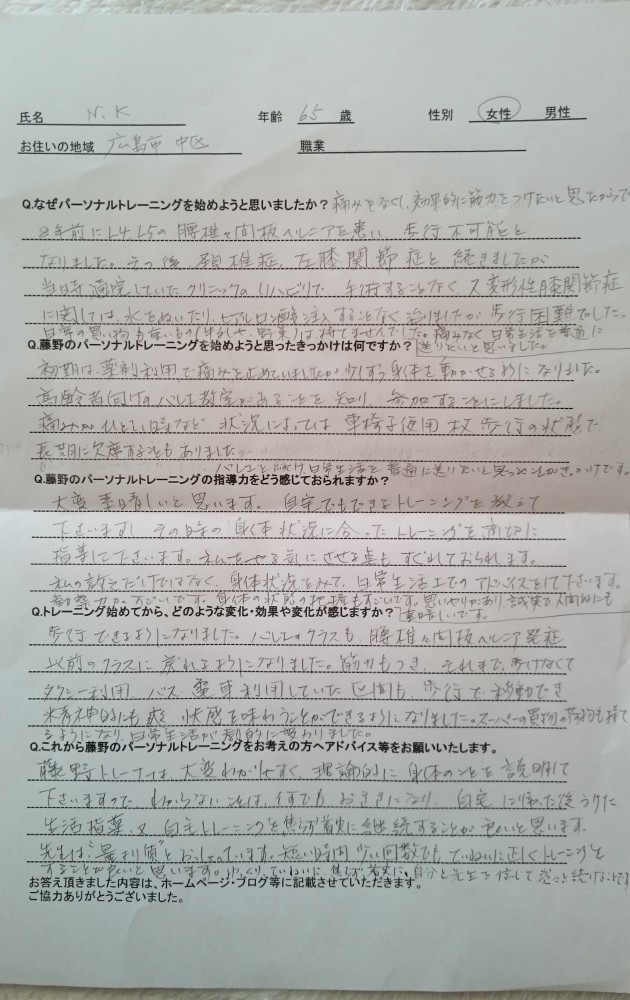 氏名 N.K 年齢 65 歳 性別 女性 男性
お住いの地域 広島市 中区 職業
Q.なぜパーソナルトレーニングを始めようと思いましたか？痛みをなくし、効果的に筋力をつけたいと思ったからです
8年前にL4,L5の腰椎々間板ヘルニアを患い 歩行不可能と
なりました。その後、頚椎症、左膝関節症と続きましたが
当時通院していたクリニックのリハビリで、手術することなく 又変形性膝関節症
に関しては、水をぬいたり、ヒアルロン酒を注入することなく治りましたが歩行困難でした。
日常の買い物も重いもの(牛乳、野菜)は持てませんでした。痛みなく日常生活を普通に
Q.藤野のパーソナルトレーニングを始めようと思ったきっかけは何ですか？ 送りたいと思いました。
初期は薬剤利用で痛みを止めていましたが少しずつ身体を動かせるようになりました。
高齢者向けのバレエ教室があることを知り、参加することにしました。
痛みがひどい時など 状況によっては車椅子使用 杖歩行の状態で
長期に欠席することもありました
バレエを続け日常生活を普通に送りたいと思ったことがきっかけです。
Q.藤野のパーソナルトレーニングの指導力をどう感じておられますか？
大変素晴しいと思います。自宅でもできるトレーニングを教えて
下さいますし その時の身体状況に合ったトレーニングを適切に
指導して下さいます。私をやる気にさせる点もすぐれておられます。
私の訴えだけではなく、身体状況をみて、日常生活上でのアドバイスをして下さいます。
観察力がすごいです。身体の状態の把握もすごいです。思いやりがあり誠実で人間的にも
Q.トレーニング始めてから、どのような変化・効果や変化が感じますか？ 素晴しいです。
歩行できるようになりました。バレエのクラスも、腰椎々間板ヘルニア発症
以前のクラスに戻れるようになりました。筋力もつき、それまで歩けなくて
タクシー利用、バス、電車利用していた区間も 歩行で移動でき
精神的にも爽快感を味わうことができるようになりました。スーパーの買物の荷物も持て
るようになり 日常生活が劇的に変わりました。
Q.これから藤野のパーソナルトレーニングをお考えの方へアドバイス等をお願いいたします。
藤野トレーナーは、大変わかりやすく、理論的に身体のことを説明して
下さいますので わからないことは、何でもおききになり、自宅に帰った後うけた
生活指導、又自主トレーニングを焦らず着実に継続することが良いと思います。
先生は"量より質"とおっしゃっています。短い時間 少い回数でもていねいに正しくトレーニングを
することが良いと思います。ゆっくり、ていねいに、焦らず着実に、自分と先生を信じて
お答え頂きました内容は、ホームページ・ブログ等に記載させていただきます。
ご協力ありがとうございました。